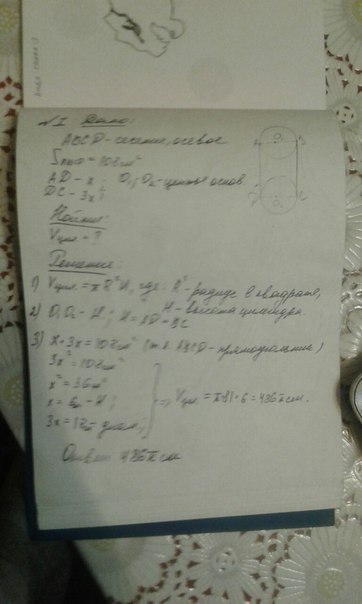 №1 Дано:
ABCD - сечение, осевое
Sпов = 108см²
AD - x ; O₁; O₂ - центры основ
DC - 3x;
Найти:
Vцил - ?
Решение:
1) Vцил. = πR²H, где: R² - радиус в квадрате,
H - высота цилиндра.
2) O₁O₂ - H; H = AD = BC
3) x · 3x = 108см² (т.к. ABCD - прямоугольник)
3x² = 108см²
x² = 36см²
x = 6см - H;
3x = 18см диам.,
=> Vцил. = π·81·6 = 486π см.
Ответ 486π см